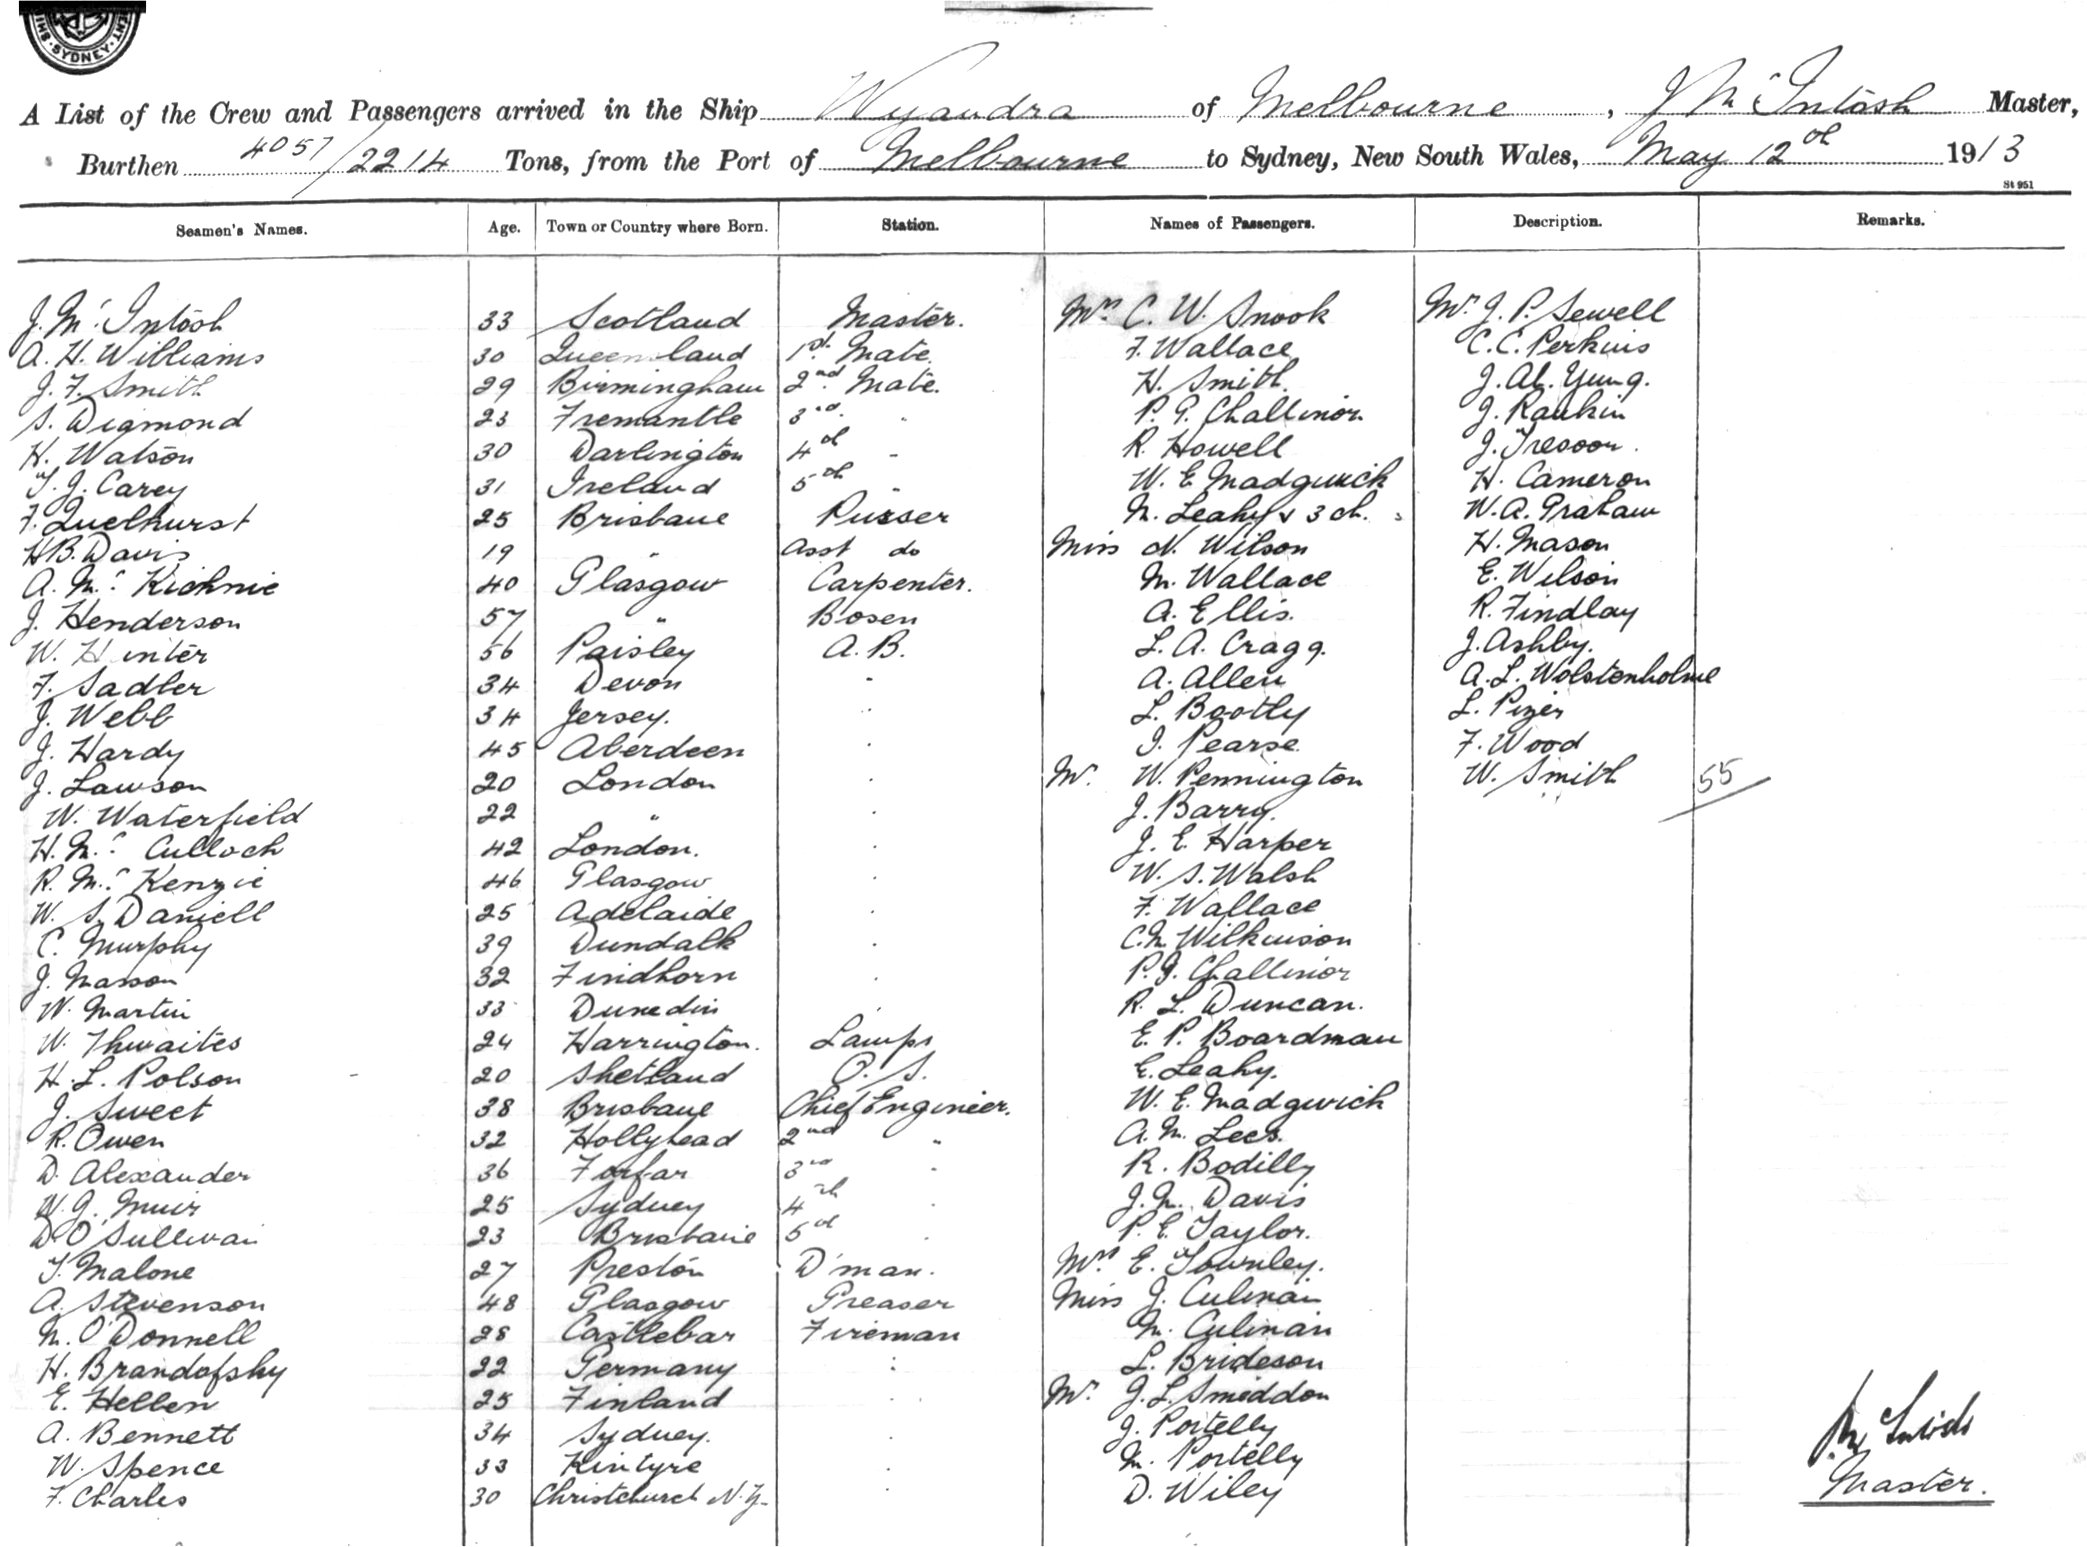 THE · SYDNEY · INT
A List of the Crew and Passengers arrived in the Ship Wyandra of Melbourne, J Mc Intosh Master,
Burthen 4057/2214 Tons, from the Port of Melbourne to Sydney, New South Wales, May 12th 1913
St 951
Seamen's Names. Age. Town or Country where Born. Station. Names of Passengers. Description. Remarks.
J. Mc Intosh 33 Scotland Master. Mrs C. W. Snook Mr J. P. Sewell
A. H. Williams 30 Queensland 1st Mate. F. Wallace C. C. Perkins
J. F. Smith 29 Birmingham 2nd Mate. H. Smith. J. Ah. Yung.
S. Digmond 23 Fremantle 3rd " P. G. Challinor J. Rankin
H. Watson 30 Darlington 4th " R. Howell J. Tresoor.
T. J. Carey 31 Ireland 5th " W. E Madgwick H. Cameron
F. Quelhurst 25 Brisbane Purser M. Leahy & 3 ch. W. A. Graham
H B. Davis 19 " Asst do Miss N. Wilson H. Mason
A. Mc Kichnie 40 Glasgow Carpenter. M. Wallace E. Wilson
J. Henderson 57 " Bosen A. Ellis. R. Findlay
W. Hunter 56 Paisley A. B. L. A. Cragg. J. Ashby.
F. Sadler 34 Devon " A. Allen A. L. Wolstenholme
J. Webb 34 Jersey. " L. Bootly L. Pizer
J. Hardy 45 Aberdeen " I. Pearse F. Wood
J. Lawson 20 London " Mr W. Pennington W. Smith 55
W. Waterfield 22 " " J. Barry.
H. Mc Culloch 42 London. " J. E. Harper
R. Mc Kenzie 46 Glasgow " W. S. Walsh
W. S. Daniell 25 Adelaide " F. Wallace
C. Murphy 39 Dundalk " C. M. Wilkinson
J. Masson 32 Findhorn " P. G. Challinor
W. Martin 33 Dunedin " R. L. Duncan.
W. Thwaites 24 Harrington. Lamps E. P. Boardman
H. L. Polson 20 Shetland O. S. E. Leahy.
J. Sweet 38 Brisbane Chief Engineer. W. E. Madgwick
R. Owen 32 Hollyhead 2nd " A. M. Lees.
D. Alexander 36 Forfar 3rd " R. Bodilly
W. G. Muir 25 Sydney 4th " J. M. Davis
D O'Sullivan 23 Brisbane 5th " P. E. Taylor.
T. Malone 27 Preston D'man. Mrs E. Townley.
A. Stevenson 48 Glasgow Greaser Miss J. Culinan
M. O'Donnell 28 Castlebar Fireman M. Culinan
H. Brandofsky 22 Germany " L. Brideson
E. Hellen 25 Finland " Mr J. L. Smeddon
A. Bennett 34 Sydney. " J. Portelly
W. Spence 33 Kintyre " M. Portelly
F. Charles 30 Christchurch N. Z. " D. Wiley
J Mc Intosh
Master.